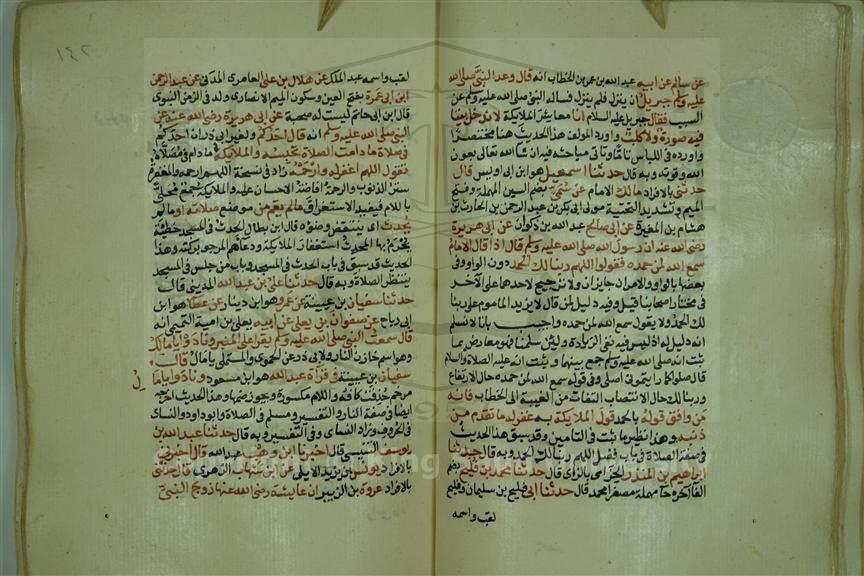 عن سالم عن ابيه عبد الله بن عمر بن الخطاب انه قال وعد النبي صلى الله
عليه وسلم جبريل ان ينزل فلم ينزل فساله النبي صلى الله عليه وسلم عن
السبب فقال جبريل عليه السلام انا معاشر الملايكة لا ندخل بيتا
فيه صورة ولا كلب واورد المولف هذا الحديث هنا مختصرا
واورده في اللباس تاما وتاتي مباحثه فيه ان شا الله تعالى بعون
الله وقوته وبه قال حدثنا اسمعيل هو ابن ابي اويس قال
حدثني بالافراد مالك الامام عن سمي بضم السين المهملة وفتح
الميم وتشديد التحتية مولى ابي بكر بن عبد الرحمن بن الحارث بن
هشام بن المغيرة عن ابي صالح عبد الله بن ذكوان عن ابي هريرة
رضي الله عنه ان رسول الله صلى الله عليه وسلم قال اذا قال الامام
سمع الله لمن حمده فقولوا اللهم ربنا لك الحمد دون الواو وفي
بعضها بالواو والامران جايزان ولا ترجيح لاحدهما على الآخر
في مختار اصحابنا قيل وفيه دليل لمن قال لا يزيد الماموم على ربنا
لك الحمد ولا يقول سمع الله لمن حمده واجيب بانا لا نسلم
انه دليل له اذ ليس فيه نفي الزيادة ولين سلمنا فهو معارض بما
ثبت انه صلى الله عليه وسلم جمع بينهما وثبت انه عليه الصلاة والسلام
قال صلوا كما رايتموني اصلي وفي قوله سمع الله لمن حمده حال الارتفاع
وربنا لك حال الانتصاب التفات من الغيبة الى الخطاب فانه
من وافق قوله بالحمد قول الملايكة به غفر له ما تقدم من
ذنبه وهذا نظير ما ثبت في التامين وقد سبق هذا الحديث
في صفة الصلاة في باب فضل اللهم ربنا لك الحمد وبه قال حدثنا
ابراهيم بن المنذر الحزامي بالزاي قال حدثنا محمد بن فليح بضم
الفا آخره حا مهملة مصغرا محمد قال حدثنا ابي فليح بن سليمان وفليح
لقب واسمه
١٤٢
لقب واسمه عبد الملك عن هلال بن علي العامري المدني عن عبد الرحمن
ابن ابي عمرة بفتح العين وسكون الميم الانصاري ولد في الزمن النبوي
قال ابن ابي حاتم ليست له صحبة عن ابي هريرة رضي الله عنه عن
النبي صلى الله عليه وسلم انه قال احدكم ولغير ابي ذر ان احدكم
في صلاة ما دامت الصلاة تحبسه والملايكة ما دام في مصلاه
تقول اللهم اغفر له وارحمه زاد في نسخة اللهم ارحمه والمغفرة
ستر الذنوب والرحمة افاضة الاحسان عليه والملايكة جمع محلى
باللام فيفيد الاستغراق ما لم يقم من موضع صلاته او ما لم
يحدث اي ينتقض وضوه قال ابن بطال الحدث في المسجد خطيئة
يحرم بها المحدث استغفار الملايكة ودعاهم المرجو بركته وهذا
الحديث قد سبق في باب الحدث في المسجد وباب من جلس في المسجد
ينتظر الصلاة وبه قال حدثنا علي بن عبد الله المديني قال
حدثنا سفيان بن عيينة عن عمرو هو ابن دينار عن عطا هو ابن
ابي رباح عن صفوان بن يعلى عن ابيه يعلى بن امية التميمي انه
قال سمعت النبي صلى الله عليه وسلم يقرا على المنبر ونادوا يا مالك
وهو اسم خازن النار ولابي ذر عن الحموي والمستملي يا مال قال
سفيان بن عيينة في قراة عبد الله هو ابن مسعود ونادوا يا مال
مرخم حذفت كافه واللام مكسورة ويجوز ضمها وهذا الحديث اخرجه
ايضا في صفة النار والتفسير ومسلم في الصلاة وابو داود والنساي
في الحروف وزاد النساي وفي التفسير وبه قال حدثنا عبد الله بن
يوسف التنيسي قال اخبرنا ابن وهب عبد الله قال اخبرني
بالافراد يونس بن يزيد الايلي عن ابن شهاب الزهري قال حدثني
بالافراد عروة بن الزبير ان عايشة رضي الله عنها زوج النبي